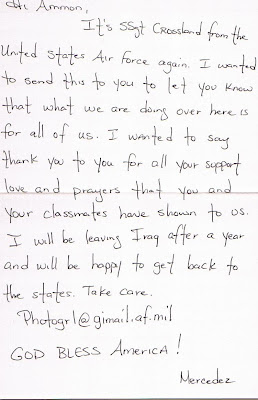 Hi Ammon,
It's SSgt Crossland from the
United States Air Force again. I wanted
to send this to you to let you know
that what we are doing over here is
for all of us. I wanted to say
thank you to you for all your support
love and prayers that you and
your classmates have shown to us.
I will be leaving Iraq after a year
and will be happy to get back to
the states. Take care.
Photogrl@gimail.af.mil
GOD BLESS AMERICA!
Mercedez